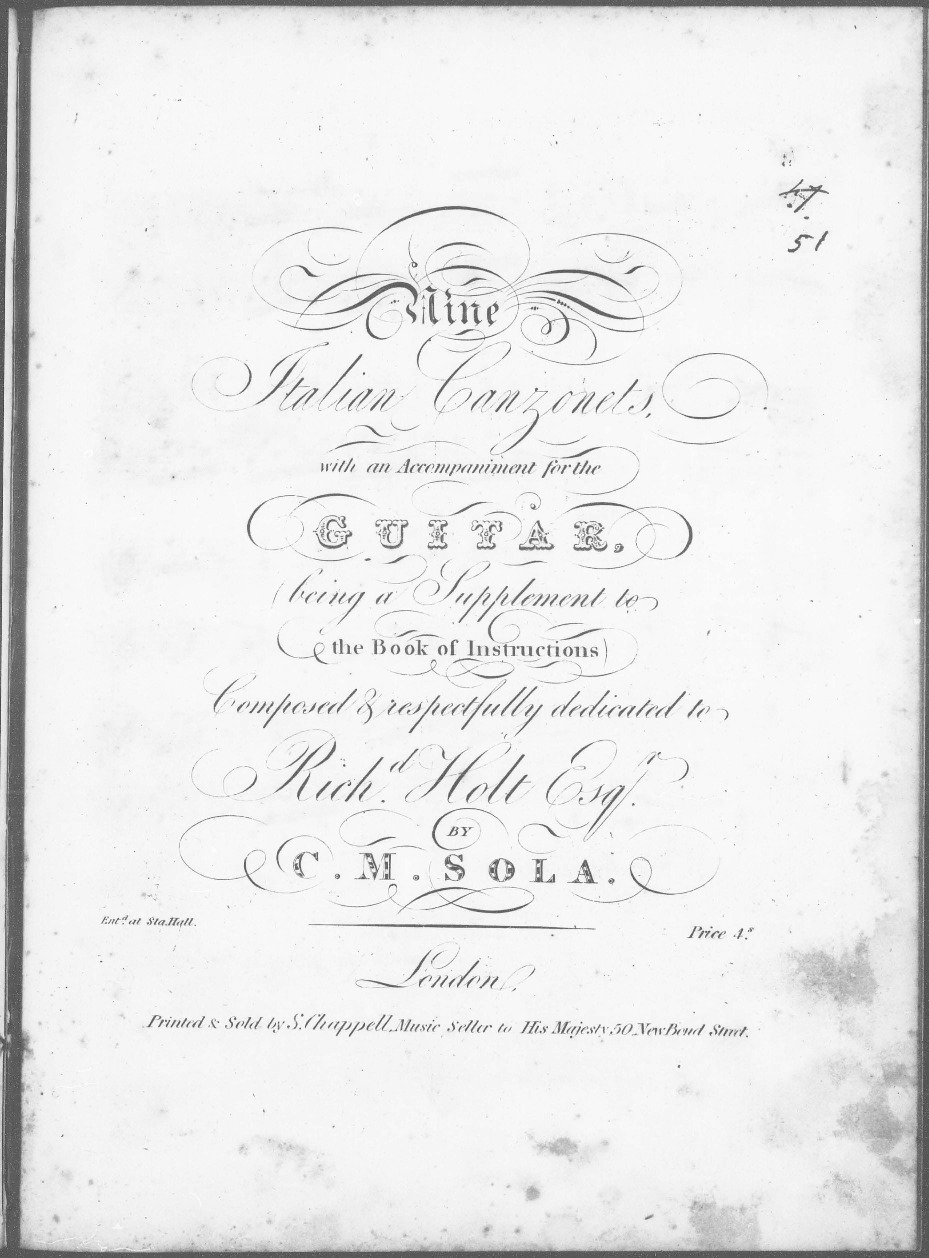 51
Nine
Italian Canzonets,
with an Accompaniment for the
GUITAR,
(being a Supplement to
the Book of Instructions)
Composed & respectfully dedicated to
Richd. Holt Esqr.
BY
C. M. SOLA.
Entd. at Sta. Hall.
Price 4s
London,
Printed & Sold by S. Chappell, Music Seller to His Majesty, 50, New Bond Street.